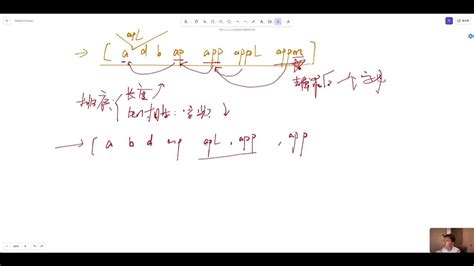 apL
→ [ a d b ap app appL appm ]
去掉最后一个字母
排序: { 长度 ↗
len相同: 字典 ↓
→ [ a b d ap apL, app , app